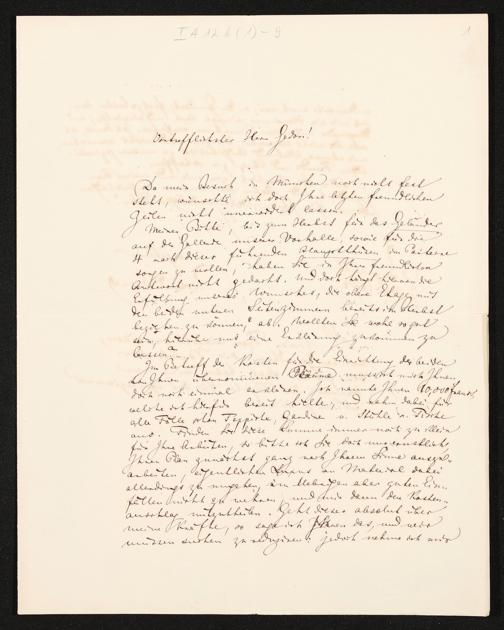 I A 12 b (1) - 9
1
Vortrefflichster Herr Gedon!
Da mein Besuch in München noch nicht fest
steht, wünschte ich doch Ihre letzten freundlichen
Zeilen nicht unerwidert lassen.
Meiner Bitte, bis zum Herbst für das Geländer
auf der Gallerie unserer Vorhalle, sowie für die
4 nach dieser führenden Ausgangsthüren im Parterre
sorgen zu wollen, haben Sie in Ihrer freundlichen
Antwort nicht gedacht. Und doch hängt hiervon die
Erfüllung unseres Wunsches, die obere Etage mit
den beiden unteren Seitenzimmern bereits im Herbst
beziehen zu können, ab. Wollten Sie wohl so gut
sein, hierüber mir eine Erklärung zukommen zu
lassen
Im Betreff der Kosten für die Einrichtung der beiden
von Ihnen übernommenen Räume muss ich Ihnen
doch noch einmal erklären. Ich nannte Ihnen 10,000 francs
welche ich hierfür bereit hielte, und nahm dabei für
alle Fälle schon Teppiche, Gardinen u. Stühle u. Tische
aus. Finden Sie diese Summe immer noch zu klein
für Ihre Arbeiten, so bitte ich Sie doch
Ihren Plan zunächst ganz nach Ihrem Sinne auszu-
arbeiten, eigentlichen Luxus an Material dabei
allerdings zu umgehen, im Uebrigen aber guten Ein-
fällen nicht zu wehren, und mir dann den Kosten-
anschlag mitzutheilen. Geht dieser absolut über
meine Kräfte, so sage ich Ihnen das, und wir
müssen suchen zu reduziren: jedoch nehme ich an